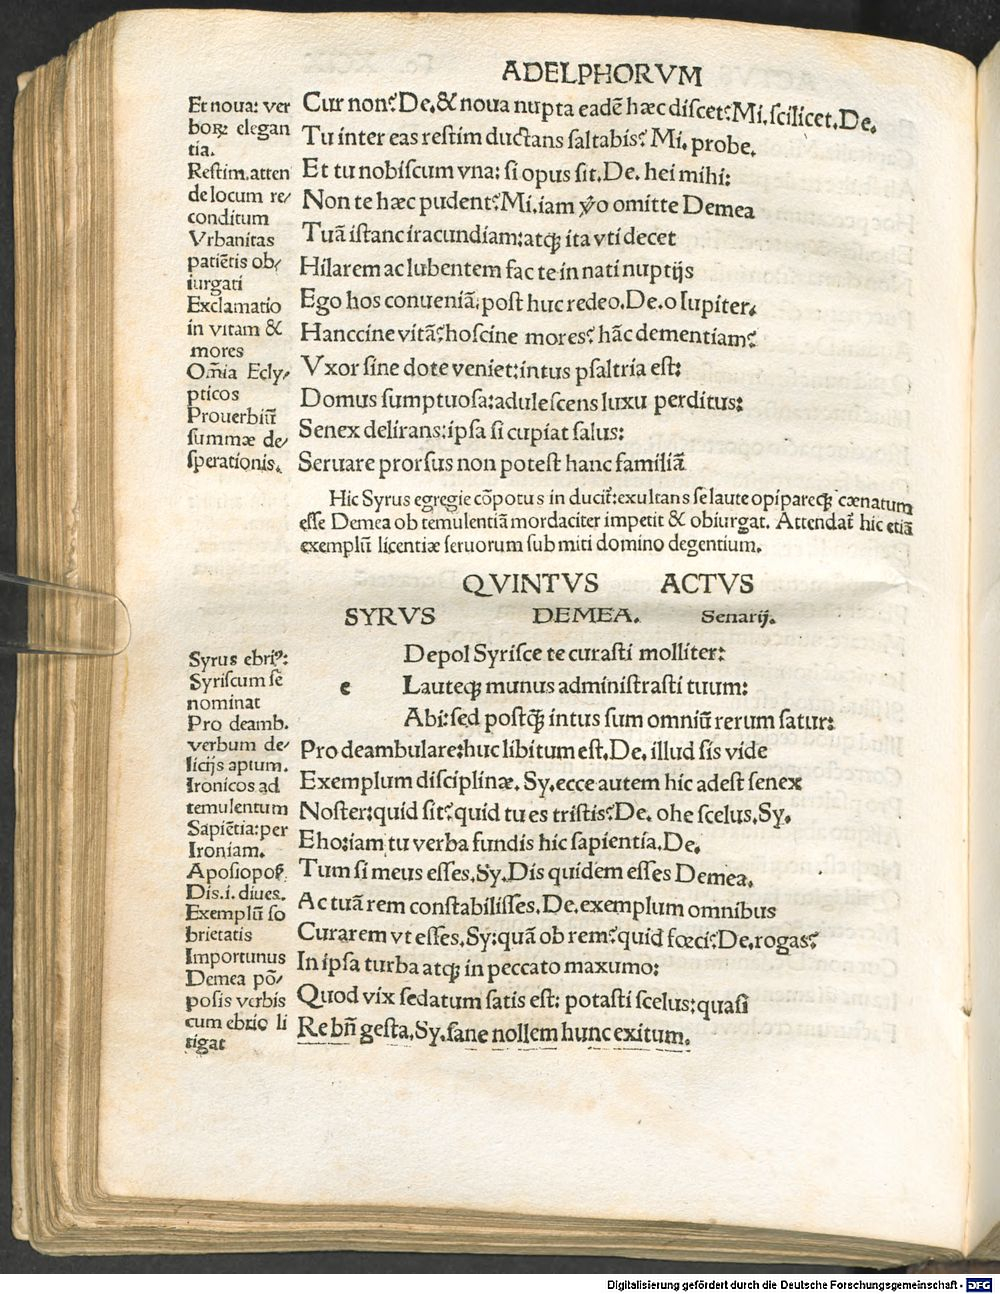 ADELPHORVM
Cur non? De. & noua nupta eadē hæc discet? Mi. scilicet. De.
Tu inter eas restim ductans saltabis? Mi. probe.
Et tu nobiscum vna: si opus sit. De. hei mihi:
Non te hæc pudent? Mi. iam ỽo omitte Demea
Tuā istanc iracundiam: atqꝫ ita vti decet
Hilarem ac lubentem fac te in nati nuptijs
Ego hos conueniā: post huc redeo. De. o Iupiter.
Hanccine vitā? hoscine mores? hāc dementiam?
Vxor sine dote veniet: intus psaltria est:
Domus sumptuosa: adulescens luxu perditus:
Senex delirans: ipsa si cupiat salus:
Seruare prorsus non potest hanc familiā
Et noua: ver
boꝝ elegan
tia.
Restim. atten
de locum re/
conditum
Vrbanitas
patiētis ob/
iurgati
Exclamatio
in vitam &
mores
Om̄ia Ecly/
pticos
Prouerbiū
summæ de/
sperationis.
Hic Syrus egregie cōpotus in ducit᷑: exultans se laute opipareqꝫ cænatum
esse Demea ob temulentiā mordaciter impetit & obiurgat. Attendat᷑ hic etiā
exemplū licentiæ seruorum sub miti domino degentium.
QVINTVS ACTVS
SYRVS DEMEA. Senarij.
e
Depol Syrisce te curasti molliter:
Lauteqꝫ munus administrasti tuum:
Abi: sed postq̄ intus sum omniū rerum satur:
Pro deambulare: huc libitum est. De. illud sis vide
Exemplum disciplinæ. Sy. ecce autem hic adest senex
Noster: quid fit? quid tu es tristis? De. ohe scelus. Sy.
Eho: iam tu verba fundis hic sapientia. De.
Tum si meus esses. Sy. Dis quidem esses Demea.
Ac tuā rem constabilisses. De. exemplum omnibus
Curarem vt esses. Sy: quā ob rem? quid fœci? De. rogas?
In ipsa turba atqꝫ in peccato maxumo:
Quod vix sedatum satis est: potasti scelus: quasi
Re bn̄ gesta. Sy. sane nollem hunc exitum.
Syrus ebriꝰ:
Syriscum se
nominat
Pro deamb.
verbum de/
licijs aptum.
Ironicos ad
temulentum
Sapiētia: per
Ironiam.
Aposiopoṡ.
Dis. i. diues.
Exemplū so
brietatis
Importunus
Demea pō/
posis verbis
cum ebrio li
tigat
Digitalisierung gefördert durch die Deutsche Forschungsgemeinschaft - DFG